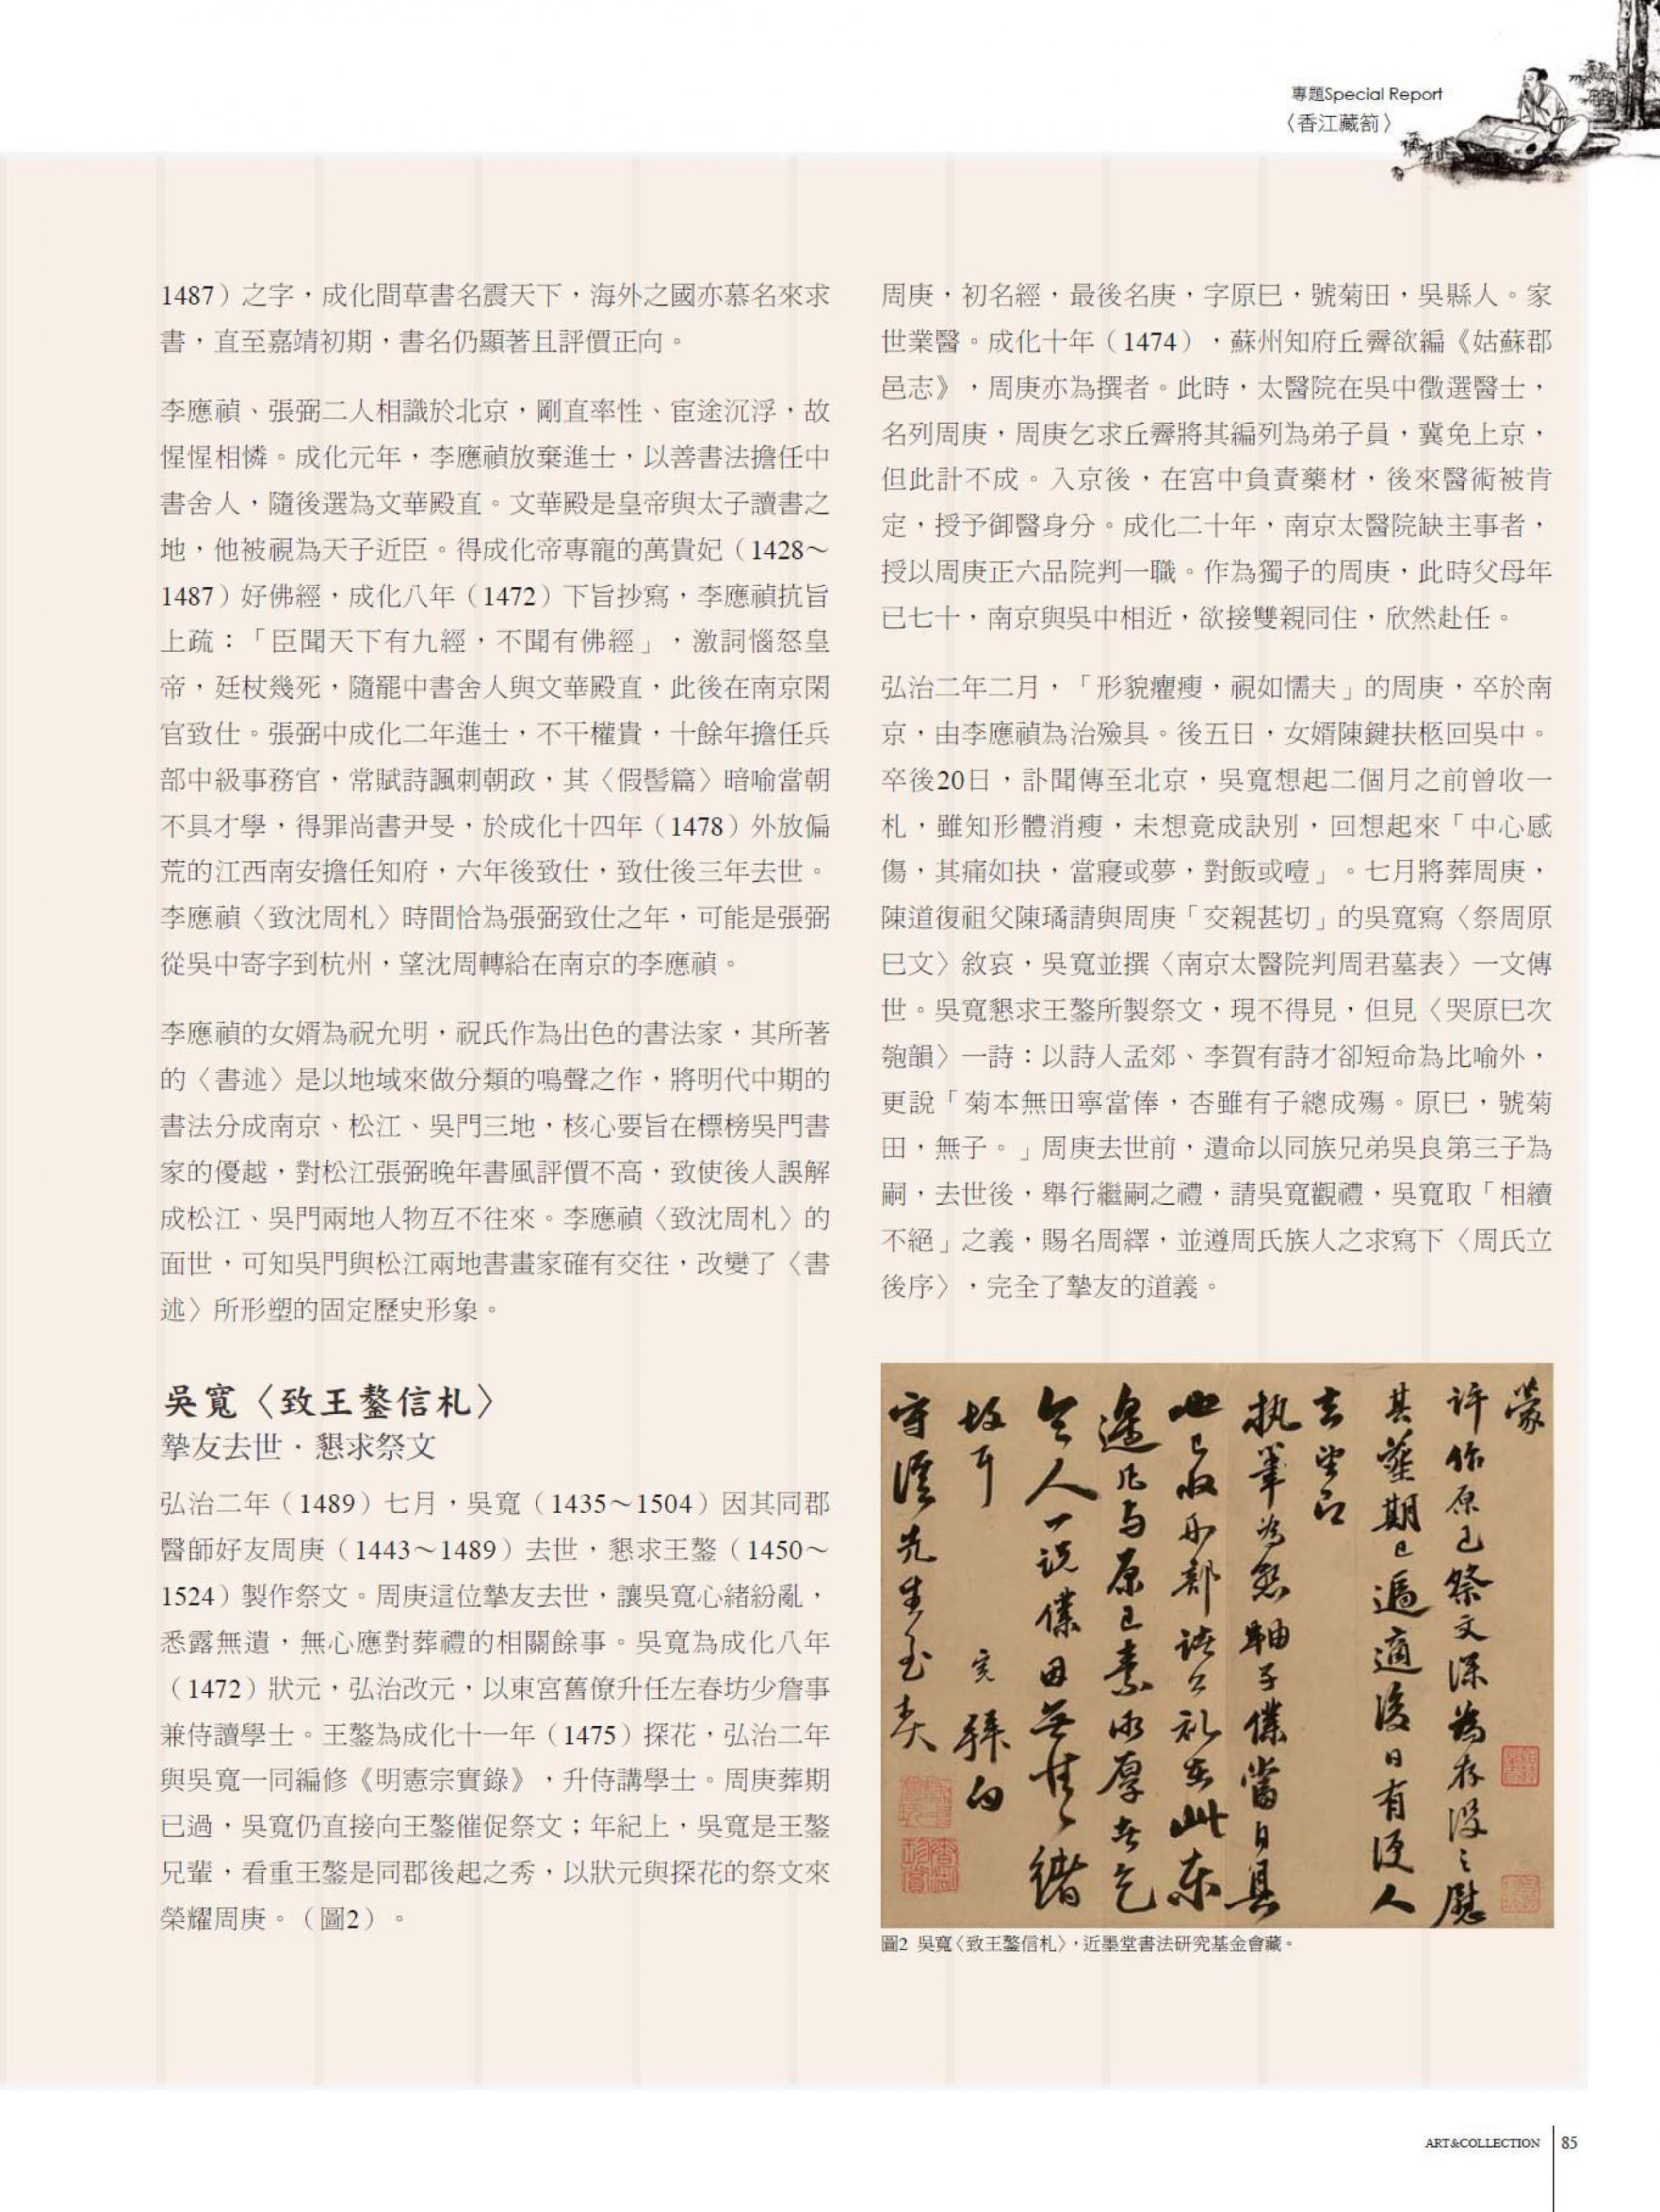 專題Special Report
〈香江藏箚〉
1487）之字，成化間草書名震天下，海外之國亦慕名來求
書，直至嘉靖初期，書名仍顯著且評價正向。
李應禎、張弼二人相識於北京，剛直率性、宦途沉浮，故
惺惺相憐。成化元年，李應禎放棄進士，以善書法擔任中
書舍人，隨後選為文華殿直。文華殿是皇帝與太子讀書之
地，他被視為天子近臣。得成化帝專寵的萬貴妃（1428～
1487）好佛經，成化八年（1472）下旨抄寫，李應禎抗旨
上疏：「臣聞天下有九經，不聞有佛經」，激詞惱怒皇
帝，廷杖幾死，隨罷中書舍人與文華殿直，此後在南京閑
官致仕。張弼中成化二年進士，不干權貴，十餘年擔任兵
部中級事務官，常賦詩諷刺朝政，其〈假髻篇〉暗喻當朝
不具才學，得罪尚書尹旻，於成化十四年（1478）外放偏
荒的江西南安擔任知府，六年後致仕，致仕後三年去世。
李應禎〈致沈周札〉時間恰為張弼致仕之年，可能是張弼
從吳中寄字到杭州，望沈周轉給在南京的李應禎。
李應禎的女婿為祝允明，祝氏作為出色的書法家，其所著
的〈書述〉是以地域來做分類的鳴聲之作，將明代中期的
書法分成南京、松江、吳門三地，核心要旨在標榜吳門書
家的優越，對松江張弼晚年書風評價不高，致使後人誤解
成松江、吳門兩地人物互不往來。李應禎〈致沈周札〉的
面世，可知吳門與松江兩地書畫家確有交往，改變了〈書
述〉所形塑的固定歷史形象。
吳寬〈致王鏊信札〉
摯友去世．懇求祭文
弘治二年（1489）七月，吳寬（1435～1504）因其同郡
醫師好友周庚（1443～1489）去世，懇求王鏊（1450～
1524）製作祭文。周庚這位摯友去世，讓吳寬心緒紛亂，
悉露無遺，無心應對葬禮的相關餘事。吳寬為成化八年
（1472）狀元，弘治改元，以東宮舊僚升任左春坊少詹事
兼侍讀學士。王鏊為成化十一年（1475）探花，弘治二年
與吳寬一同編修《明憲宗實錄》，升侍講學士。周庚葬期
已過，吳寬仍直接向王鏊催促祭文；年紀上，吳寬是王鏊
兄輩，看重王鏊是同郡後起之秀，以狀元與探花的祭文來
榮耀周庚。（圖2）。
周庚，初名經，最後名庚，字原巳，號菊田，吳縣人。家
世業醫。成化十年（1474），蘇州知府丘霽欲編《姑蘇郡
邑志》，周庚亦為撰者。此時，太醫院在吳中徵選醫士，
名列周庚，周庚乞求丘霽將其編列為弟子員，冀免上京，
但此計不成。入京後，在宮中負責藥材，後來醫術被肯
定，授予御醫身分。成化二十年，南京太醫院缺主事者，
授以周庚正六品院判一職。作為獨子的周庚，此時父母年
已七十，南京與吳中相近，欲接雙親同住，欣然赴任。
弘治二年二月，「形貌癯瘦，視如懦夫」的周庚，卒於南
京，由李應禎為治殮具。後五日，女婿陳鍵扶柩回吳中。
卒後20日，訃聞傳至北京，吳寬想起二個月之前曾收一
札，雖知形體消瘦，未想竟成訣別，回想起來「中心感
傷，其痛如抉，當寢或夢，對飯或噎」。七月將葬周庚，
陳道復祖父陳璚請與周庚「交親甚切」的吳寬寫〈祭周原
巳文〉敘哀，吳寬並撰〈南京太醫院判周君墓表〉一文傳
世。吳寬懇求王鏊所製祭文，現不得見，但見〈哭原巳次
匏韻〉一詩：以詩人孟郊、李賀有詩才卻短命為比喻外，
更說「菊本無田寧當俸，杏雖有子總成殤。原巳，號菊
田，無子。」周庚去世前，遺命以同族兄弟吳良第三子為
嗣，去世後，舉行繼嗣之禮，請吳寬觀禮，吳寬取「相續
不絕」之義，賜名周繹，並遵周氏族人之求寫下〈周氏立
後序〉，完全了摯友的道義。
蒙
許作原已祭文深為存沒之慰
其葬期已過適後日有便人
去望即
執筆為懇軸子僕當自具
今人一說僕毋無情緒
故耳 寬拜白
守溪先生至契
圖2 吳寬〈致王鏊信札〉，近墨堂書法研究基金會藏。
ART&COLLECTION 85